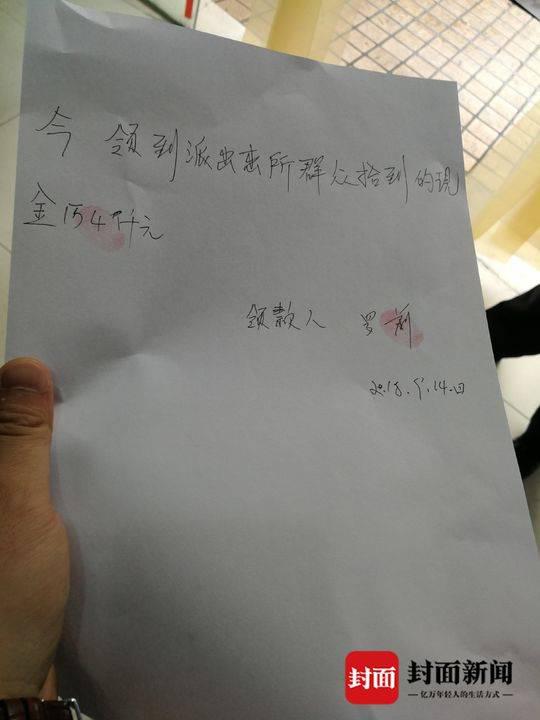 今 领到派出所群众拾到的现
金 4仟元
领款人 罗莉
封面 封面新闻
亿万年轻人的生活方式